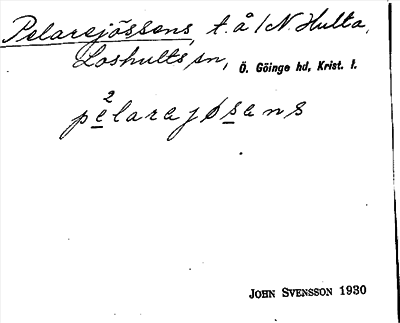 Pelaresjössens, t.å /N. Hulta,
Loshults sn, Ö. Göinge hd, Krist. l.
2
pelarajøsans
JOHN SVENSSON 1930